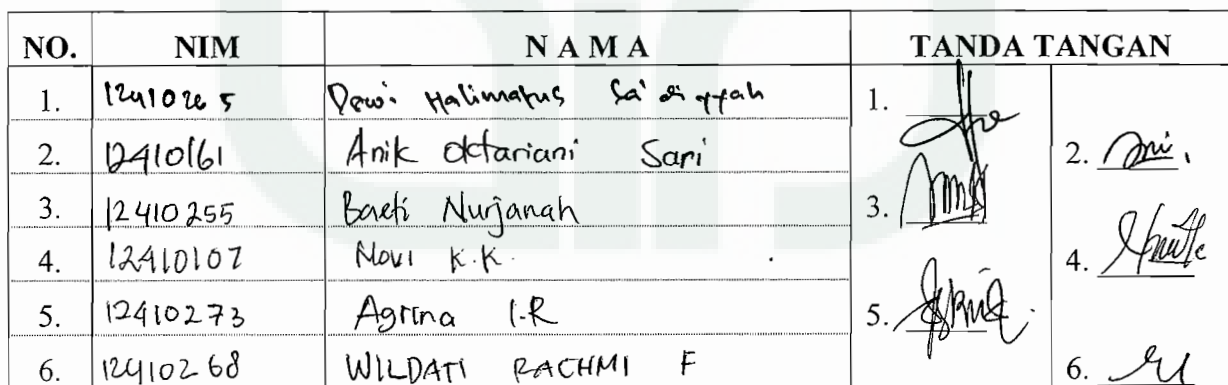 NO. NIM N A M A TANDA TANGAN
1. 12410265 Dewi Halimatus Sa'diyyah 1.
2. 12410161 Anik Oktariani Sari 2.
3. 12410255 Baeti Nurjanah 3.
4. 12410107 Novi K.K. 4.
5. 12410273 Agrina I.R 5.
6. 12410268 WILDATI RACHMI F 6.